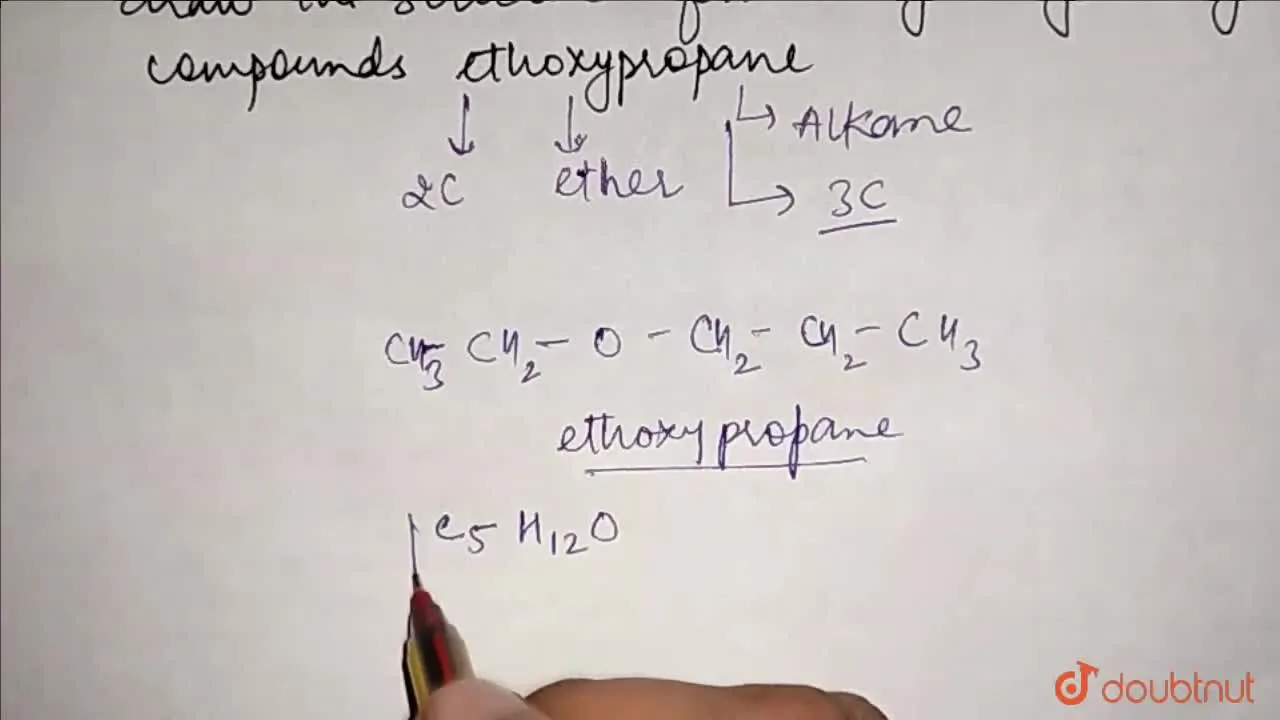 compounds ethoxypropane
Alkane
2C ether 3C
CH3 CH2 - O - CH2 - CH2 - CH3
ethoxypropane
C5H12O
doubtnut